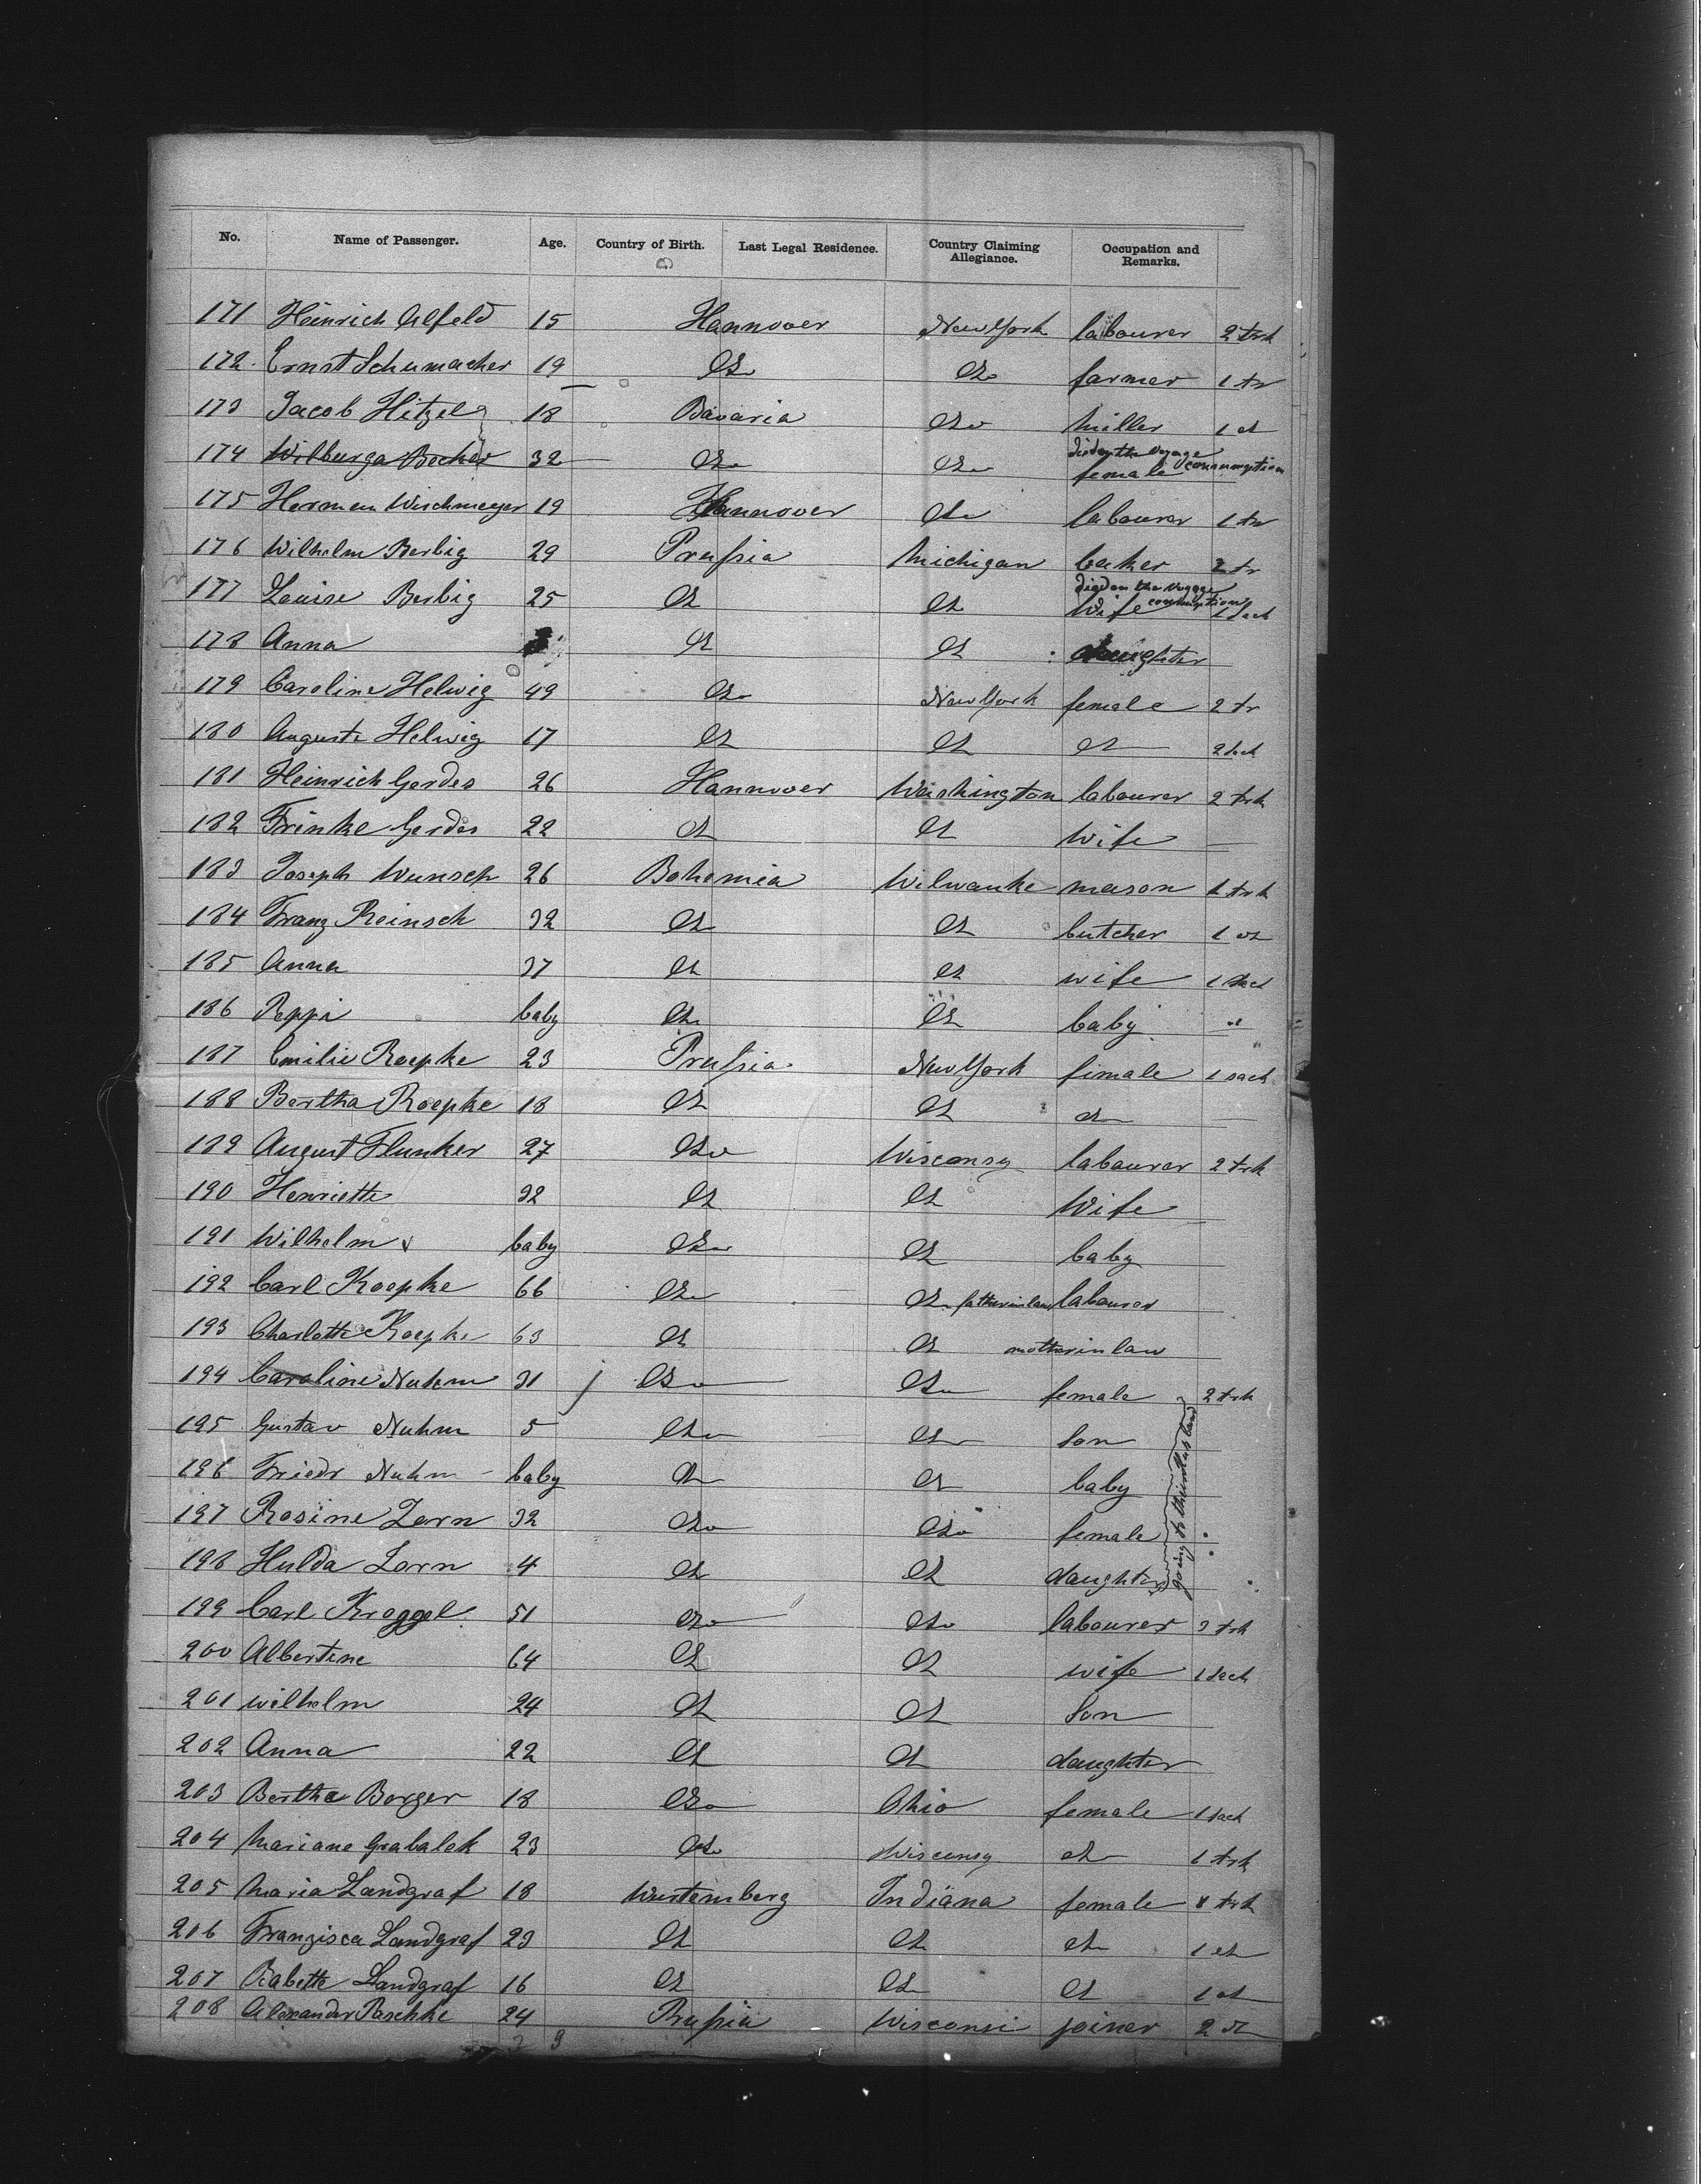 No. Name of Passenger. Age. Country of Birth. Last Legal Residence. Country Claiming Allegiance. Occupation and Remarks.
171 Heinrich Alfeld 15 Hannover New York labourer 2 trk
172 Ernst Schumacher 19 do do farmer 1 tr
173 Jacob Hitzel 18 Bavaria do miller 1 do
174 Wilburga Becher 32 do do died on the voyage consumption female
175 Herman Wischmeyer 19 Hannover do labourer 1 tr
176 Wilhelm Berbig 29 Prussia Michigan baker 2 tr
177 Louise Berbig 25 do do died on the voyage consumption Wife 1 sack
178 Anna do do daughter
179 Caroline Helwig 49 do New York female 2 tr
180 Auguste Helwig 17 do do do 2 sack
181 Heinrich Gerdes 26 Hannover Washington labourer 2 trk
182 Trinke Gerdes 22 do do Wife
183 Joseph Wunsch 26 Bohemia Milwauke mason 1 trk
184 Franz Reinsch 32 do do butcher 1 do
185 Anna 37 do do wife 1 sack
186 Peppi baby do do baby "
187 Emilie Roepke 23 Prussia New York fimale 1 sack
188 Bertha Roepke 18 do do do
189 August Flunker 27 do Wisconsy labourer 2 trk
190 Henriette 32 do do Wife
191 Wilhelm baby do do baby
192 Carl Koepke 66 do do father in law labourer
193 Charlotte Koepke 63 do do mother in law
194 Caroline Nuhm 31 do do female 2 trk
195 Gustav Nuhm 5 do do Son
196 Friedr Nuhm baby do do baby
197 Rosine Zorn 32 do do female
198 Hulda Zorn 4 do do daughter
going to their husband
199 Carl Kroggel 51 do do labourer 3 trk
200 Albertine 64 do do wife 1 sack
201 wilhelm 24 do do Son
202 Anna 22 do do daughter
203 Bertha Borger 18 do Ohio female 1 sack
204 Mariane Grabalek 23 do Wisconsy do 1 trk
205 Maria Landgraf 18 Wurtemberg Indiana female 1 trk
206 Franzisca Landgraf 23 do do do 1 do
207 Babette Landgraf 16 do do do 1 do
208 Alexander Paschke 24 Prussia Wisconsi joiner 2 do